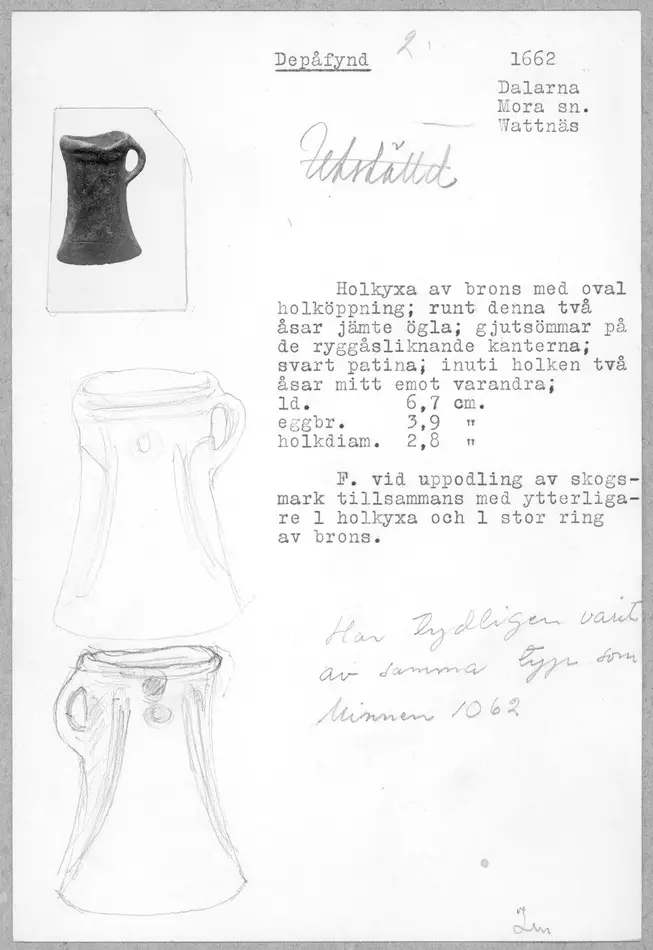 Depåfynd
2.
1662
Dalarna
Mora sn.
Wattnäs
Utställd
Holkyxa av brons med oval
holköppning; runt denna två
åsar jämte ögla; gjutsömmar på
de ryggåsliknande kanterna;
svart patina; inuti holken två
åsar mitt emot varandra;
ld. 6,7 cm.
eggbr. 3,9 "
holkdiam. 2,8 "
F. vid uppodling av skogs-
mark tillsammans med ytterliga-
re 1 holkyxa och 1 stor ring
av brons.
Har tydligen varit
av samma typ som
Minnen 1062